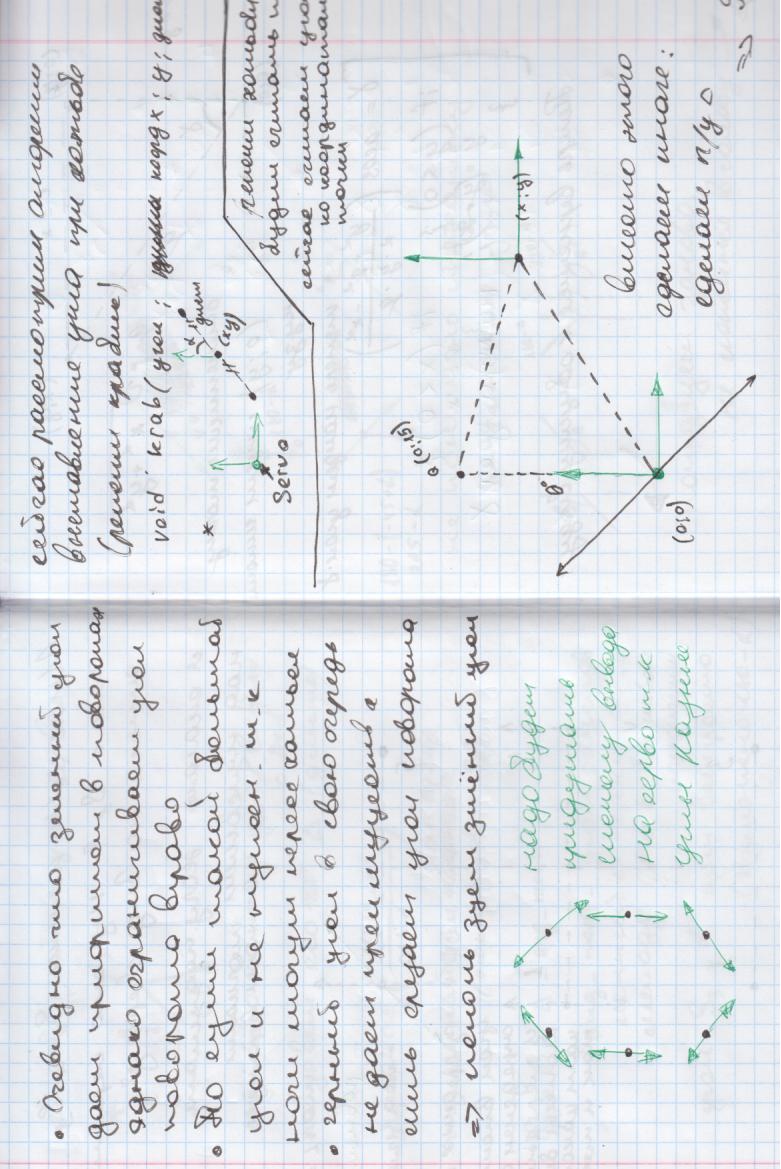 • Очевидно что зеленый угол
дает приоритет в поворотах
однако ограничивает угол
поворота вправо
• Но если такой большой
угол и не нужен. т.к
ноги могут пересекаться
• черный угол в свою очередь
не дает преимуществ а
лишь срезает угол поворота
=> используем зелёный угол
надо будет
придумать
систему вывода
на серво т.к
углы разные
сейчас рассмотрим алгоритм
выставление угла при
(решении крабие)
void krab( угол ; коорд x ; y ;
α
(xy)
* Servo
будем считать
сейчас считаем угол
по координатам
точки
(0;15)
(x;y)
(0;0)
вместо этого
сделаем иначе:
сделаем п/у △
=>